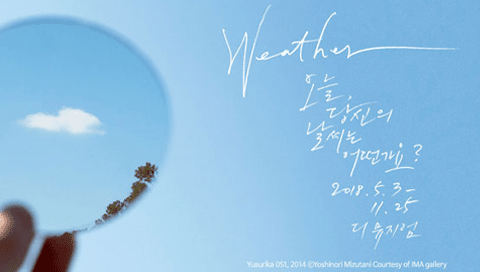 Weather
오늘,
당신의
날씨는
어떤가요?
2018.5.3-
11.25
디뮤지엄
Yusurika 051, 2014 ⓒYoshinori Mizutani Courtesy of IMA gallery